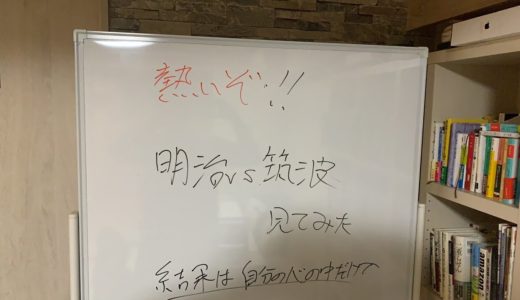 熱いぞ!!
明治vs筑波
見てみた
結果は自分の心の中だけで
amazon